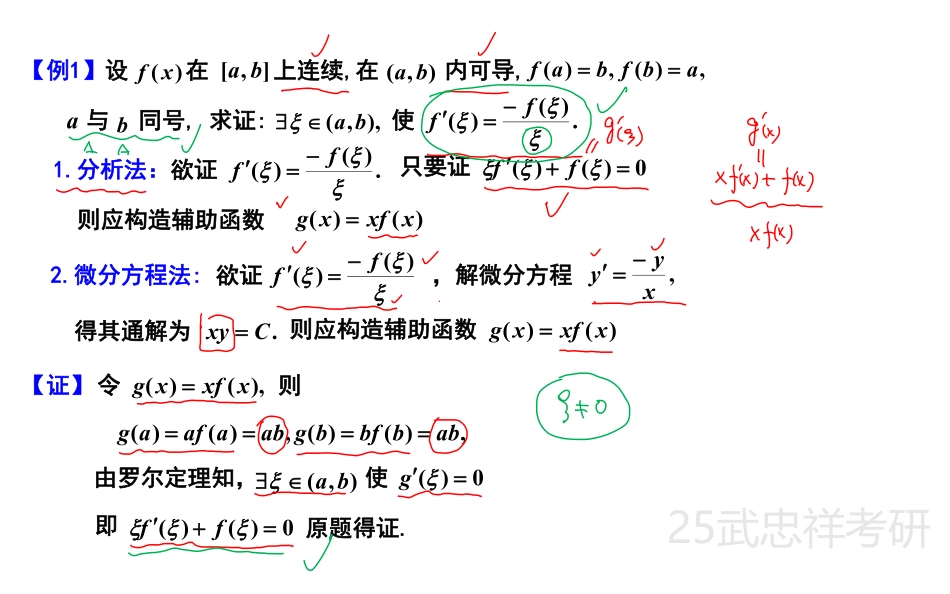 【例1】设 f(x) 在 [a,b] 上连续,在 (a,b) 内可导, f(a)=b, f(b)=a,
a 与 b 同号, 求证: ∃ξ∈(a,b), 使 f′(ξ)=−f(ξ)/ξ.
g′(ξ)
g′(x)
=
xf′(x)+f(x)
xf(x)
1.分析法: 欲证 f′(ξ)=−f(ξ)/ξ. 只要证 ξf′(ξ)+f(ξ)=0
则应构造辅助函数 g(x)=xf(x)
2.微分方程法: 欲证 f′(ξ)=−f(ξ)/ξ , 解微分方程 y′=−y/x,
得其通解为 xy=C. 则应构造辅助函数 g(x)=xf(x)
【证】令 g(x)=xf(x), 则
ξ≠0
g(a)=af(a)=ab, g(b)=bf(b)=ab,
由罗尔定理知, ∃ξ∈(a,b) 使 g′(ξ)=0
即 ξf′(ξ)+f(ξ)=0 原题得证.
25武忠祥考研